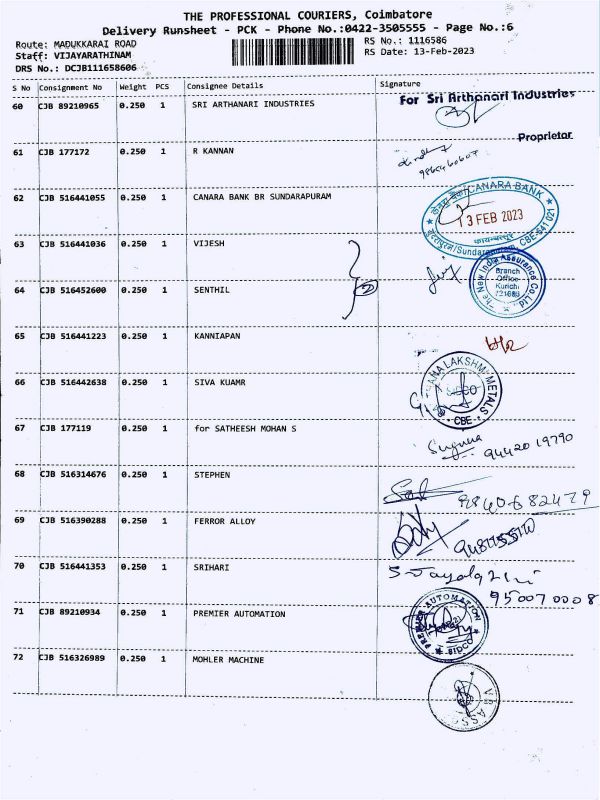 THE PROFESSIONAL COURIERS, Coimbatore
Delivery Runsheet - PCK - Phone No.:0422-3505555 - Page No.:6
Route: MADUKKARAI ROAD
RS No.: 1116586
Staff: VIJAYARATHINAM
RS Date: 13-Feb-2023
DRS No.: DCJB111658606
S No Consignment No Weight PCS Consignee Details Signature
60 CJB 89210965 0.250 1 SRI ARTHANARI INDUSTRIES
For Sri Arthanari Industries
Proprietor
61 CJB 177172 0.250 1 R KANNAN
62 CJB 516441055 0.250 1 CANARA BANK BR SUNDARAPURAM
CANARA BANK
13 FEB 2023
कोयम्बत्तूर
Sundarapuram CBE-641 021
63 CJB 516441036 0.250 1 VIJESH
The New India Assurance Co Ltd
Branch
Office
Kurichi
64 CJB 516452600 0.250 1 SENTHIL
2
65 CJB 516441223 0.250 1 KANNIAPAN
66 CJB 516442638 0.250 1 SIVA KUAMR
LAKSHMI METALS
SIDCO
CBE
67 CJB 177119 0.250 1 for SATHEESH MOHAN S
Suguna
94420 19790
68 CJB 516314676 0.250 1 STEPHEN
9840682479
69 CJB 516390288 0.250 1 FERROR ALLOY
70 CJB 516441353 0.250 1 SRIHARI
95007 0008
71 CJB 89210934 0.250 1 PREMIER AUTOMATION
PREMIER AUTOMATION
SIDCO
72 CJB 516326989 0.250 1 MOHLER MACHINE